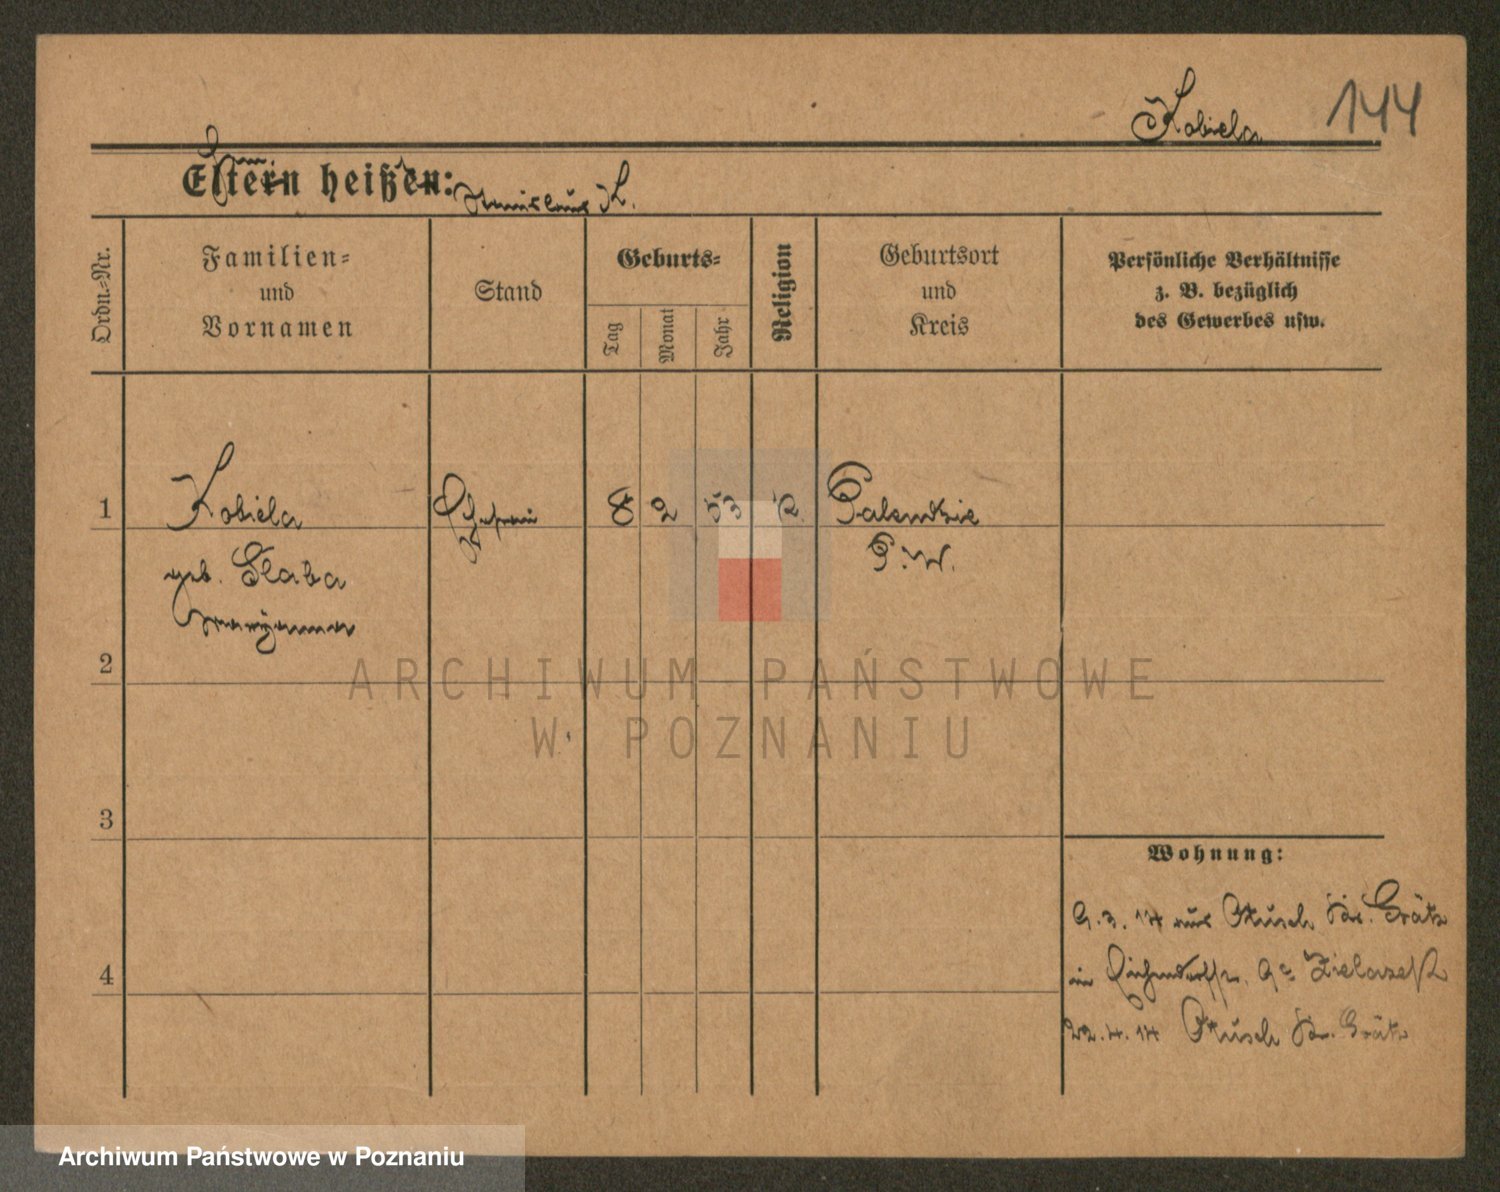 Kobiela 144
Eltern heißen: Stanislaus K.
Ordn.=Nr.
Familien=
und
Vornamen
Stand
Geburts=
Tag
Monat
Jahr
Religion
Geburtsort
und
Kreis
Persönliche Verhältnisse
z. B. bezüglich
des Gewerbes usw.
1 Kobiela 8 2 53 Palendzie
geb. Slaba P. W.
Maryanna
2
3
4
Wohnung:
9. 3. 14 aus Ptusch Kr. Grätz
in Eichendorffstr. 9c
22. 4. 14 Ptusch Kr. Grätz
ARCHIWUM PAŃSTWOWE
W POZNANIU
Archiwum Państwowe w Poznaniu